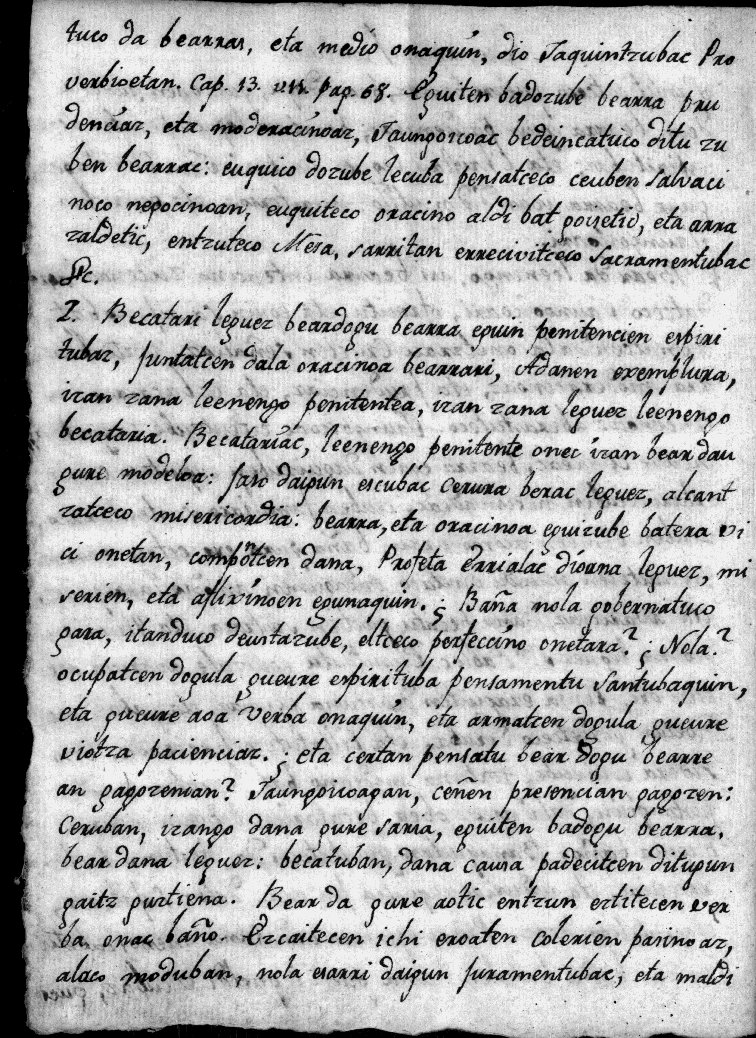 tuco da bearraz, eta medio onaquin, dio Jaquintzubac Pro
verbioetan. Cap. 13. v11. pag. 68. Eguiten badozube bearra pru
denciaz, eta moderacinoaz, Jaungoicoac bedeincatuco ditu zu
ben bearrac: euquico dozube lecuba pensatceco ceuben salvaci
noco negocinoan, euquiteco oracino aldi bat goizetic, eta arra
zaldetic, entzuteco Mesa, sarritan errecivitceco Sacramentubac
&c.
2. Becatari leguez beardogu bearra eguin penitencien espiri
tubaz, juntatcen dala oracinoa bearrari, Adanen exemplura,
izan zana leenengo penitentea, izan zana leguez leenengo
becataria. Becatariac, leenengo penitente onec izan bear dau
gure modeloa: jaso daigun escubac cerura berac leguez, alcant
zatceco misericordia: bearra, eta oracinoa eguizube batera vi
ci onetan, compontcen dana, Profeta errialac diorna leguez, mi
serien, eta aflixinoen egunaquin. ¿ Baña nola gobernatuco
gara, itanduco deustazube, eltceco perfeccino onetara? ¿ Nola?
ocupatcen dogula gueure espirituba pensamentu santubaquin,
eta gueure aoa verba onaquin, eta armatzen dogula gueure
viotza pacienciaz. ¿ eta certan pensatu bear dogu bearre
an gagozenian? Jaungoicoagan, ceñen presencian gagozen:
Ceruban, izango dana gure saria, eguiten badogu bearra,
bear dana leguez: becatuban, dana causa padecitcen ditugun
gaitz guztiena. Bear da gure aotic entzun eztitecen ver
ba onac baño. Ezcaitecen ichi eroaten colerien pasinoaz,
alaco moduban, nola esarri daigun juramentubac, eta maldi